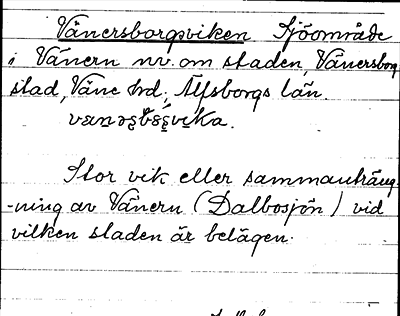 Vänersborgsviken Sjöområde
i Vänern nv. om staden, Vänersborg
stad, Väne hd., Älvsborgs län.
Stor vik eller sammanträng-
-ning av Vänern (Dalbosjön) vid
vilken staden är belägen.